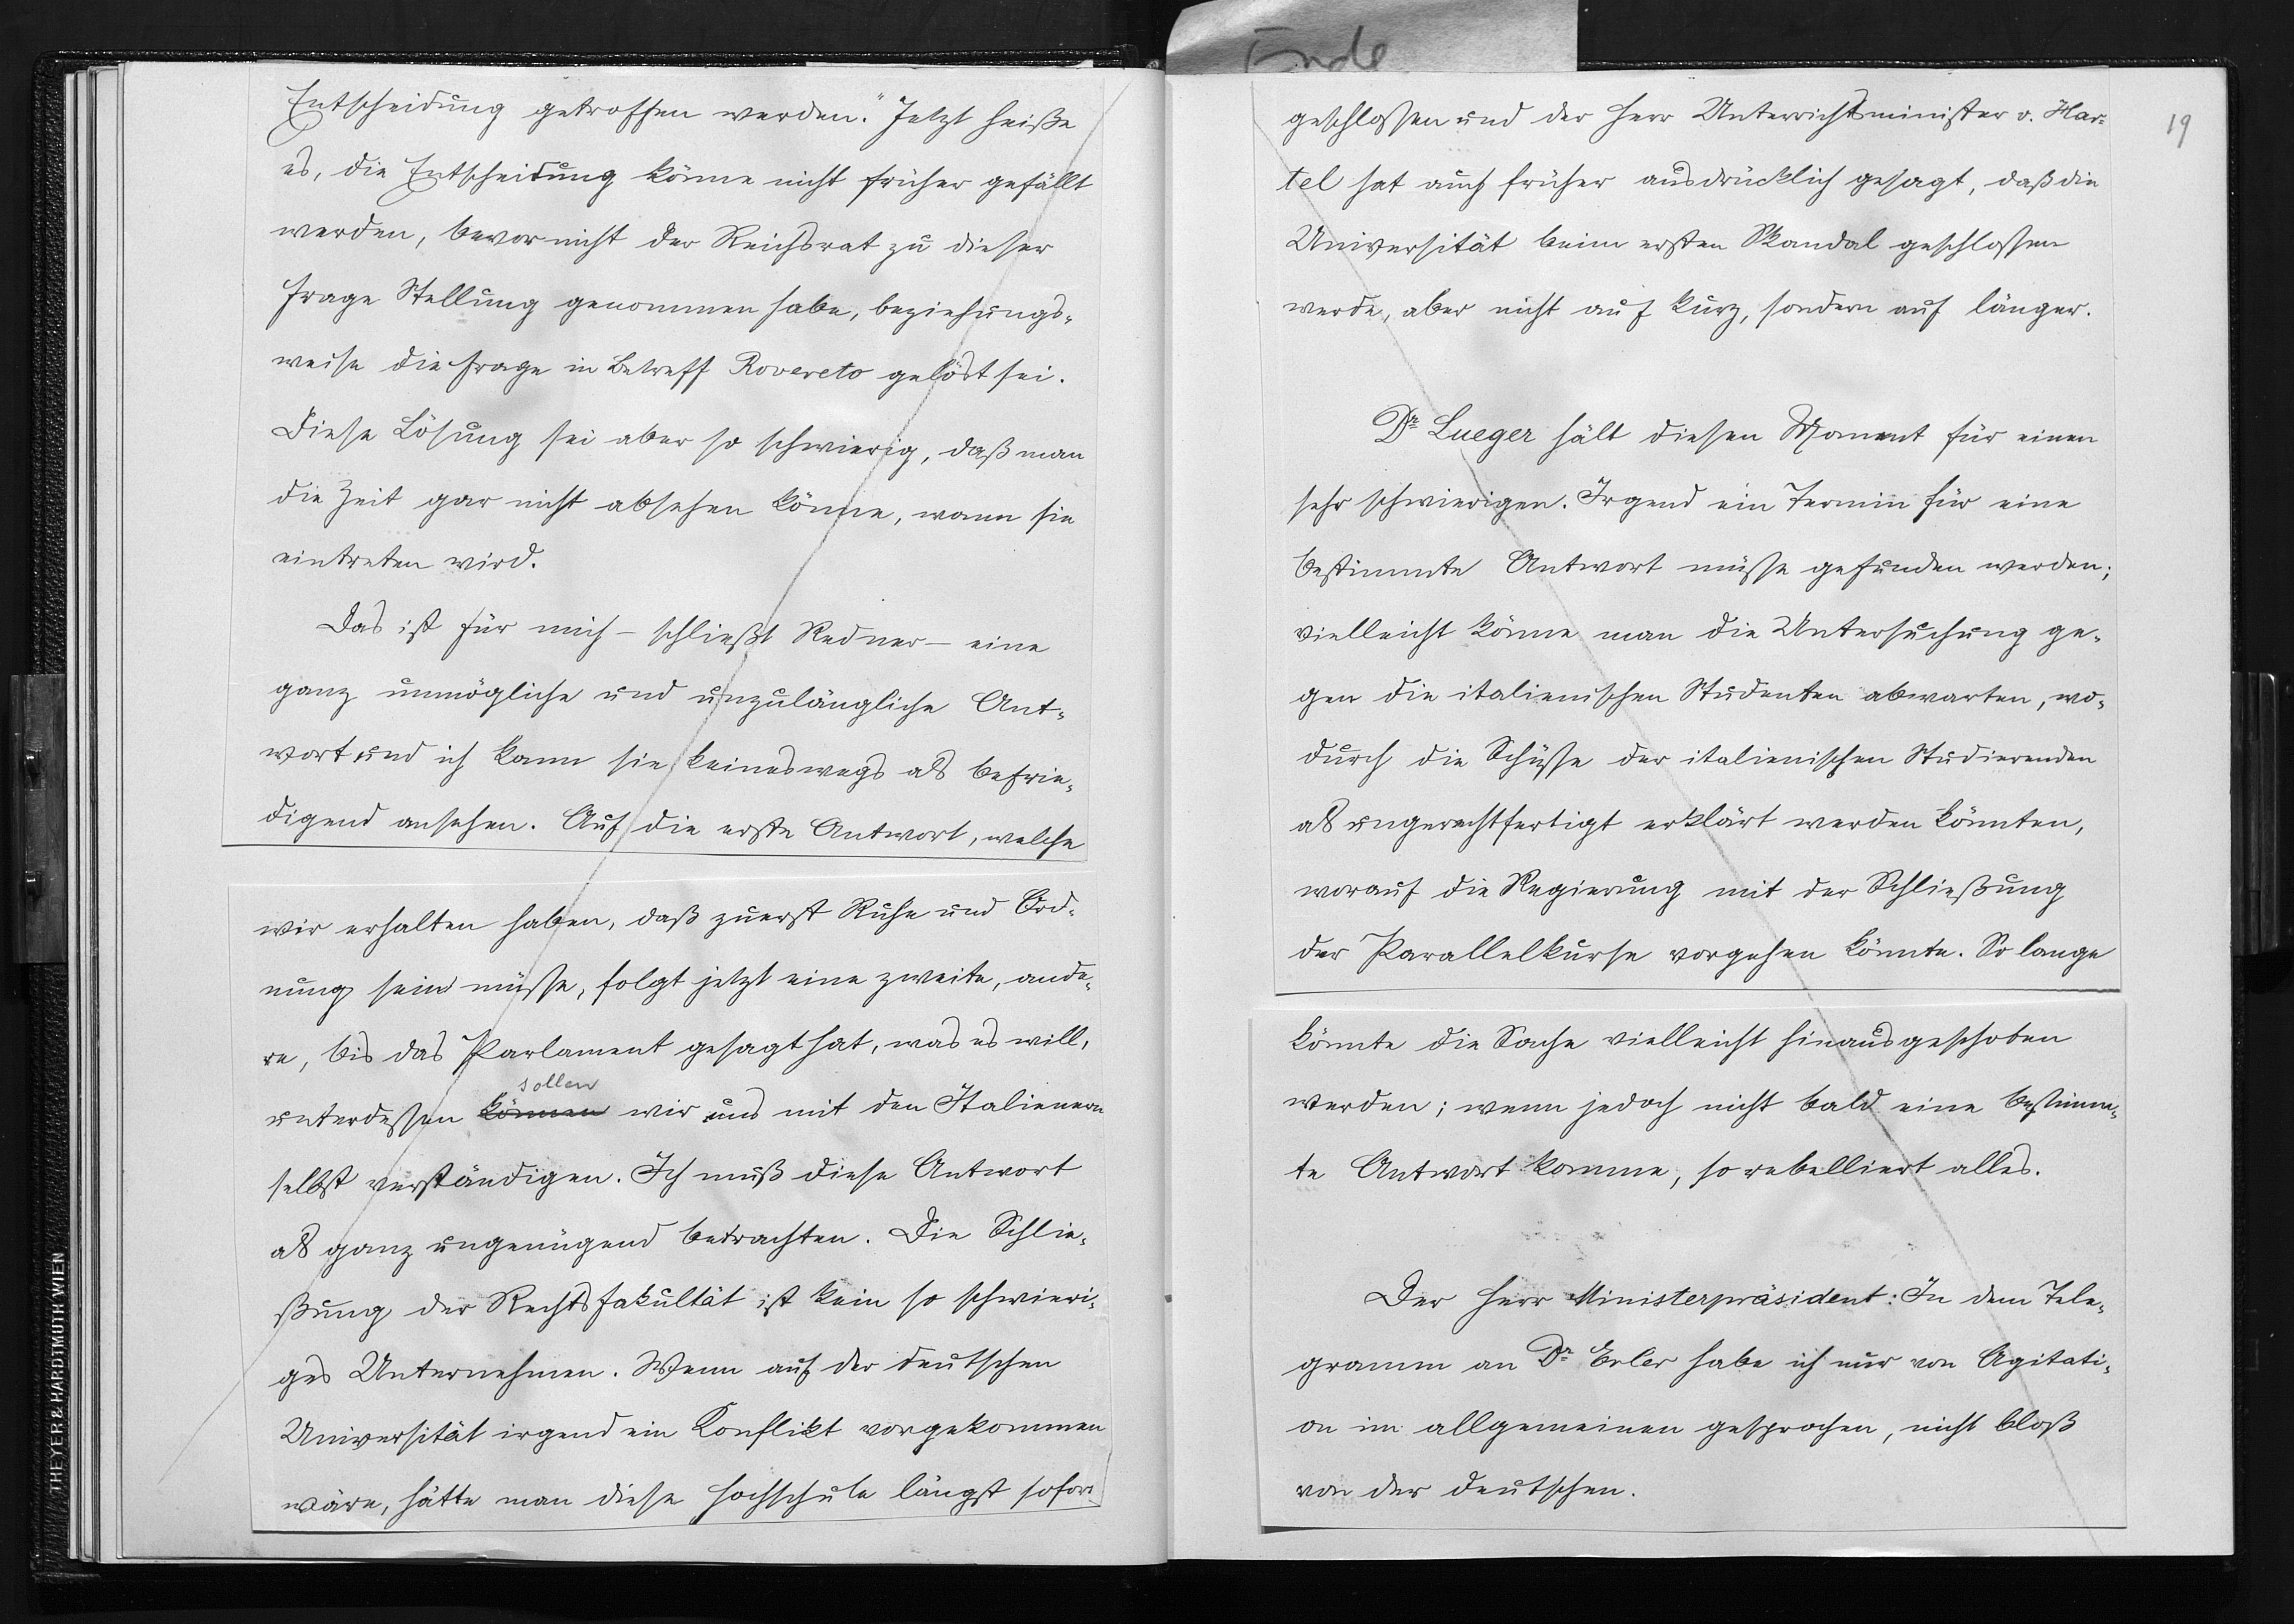 Entscheidung getroffen werden." Jetzt heiße
es, die Entscheidung könne nicht früher gefällt
werden, bevor nicht der Reichsrat zu dieser
Frage Stellung genommen habe, beziehungs-
weise die Frage in Betreff Rovereto gelöst sei.
Diese Lösung sei aber so schwierig, daß man
die Zeit gar nicht absehen könne, wann sie
eintreten wird.
Das ist für mich – schließt Redner – eine
ganz unmögliche und unzulängliche Ant-
wort und ich kann sie keineswegs als befrie-
digend ansehen. Auf die erste Antwort, welche
wir erhalten haben, daß zuerst Ruhe und Ord-
nung sein müsse, folgt jetzt eine zweite, ande-
re, bis das Parlament gesagt hat, was es will,
sollen
unterdessen können wir uns mit den Italienern
selbst verständigen. Ich muß diese Antwort
als ganz ungenügend betrachten. Die Schlie-
ßung der Rechtsfakultät ist kein so schwieri-
ges Unternehmen. Wenn auf der deutschen
Universität irgend ein Konflikt vorgekommen
wäre, hätte man diese Hochschule längst sofort
THEYER & HARDTMUTH WIEN
Ende
19
geschlossen und der Herr Unterrichtsminister v. Har-
tel hat auch früher ausdrücklich gesagt, daß die
Universität beim ersten Skandal geschlossen
werde, aber nicht auf kurz, sondern auf länger.
Dr Lueger hält diesen Moment für einen
sehr schwierigen. Irgend ein Termin für eine
bestimmte Antwort müsse gefunden werden;
vielleicht könne man die Untersuchung ge-
gen die italienischen Studenten abwarten, wo-
durch die Schüsse der italienischen Studierenden
als ungerechtfertigt erklärt werden könnten,
worauf die Regierung mit der Schließung
der Parallelkurse vorgehen könnte. So lange
könnte die Sache vielleicht hinausgeschoben
werden; wenn jedoch nicht bald eine bestimm-
te Antwort komme, so rebelliert alles.
Der Herr Ministerpräsident: In dem Tele-
gramm an Dr Erler habe ich nur von Agitati-
on im allgemeinen gesprochen, nicht bloß
von der deutschen.